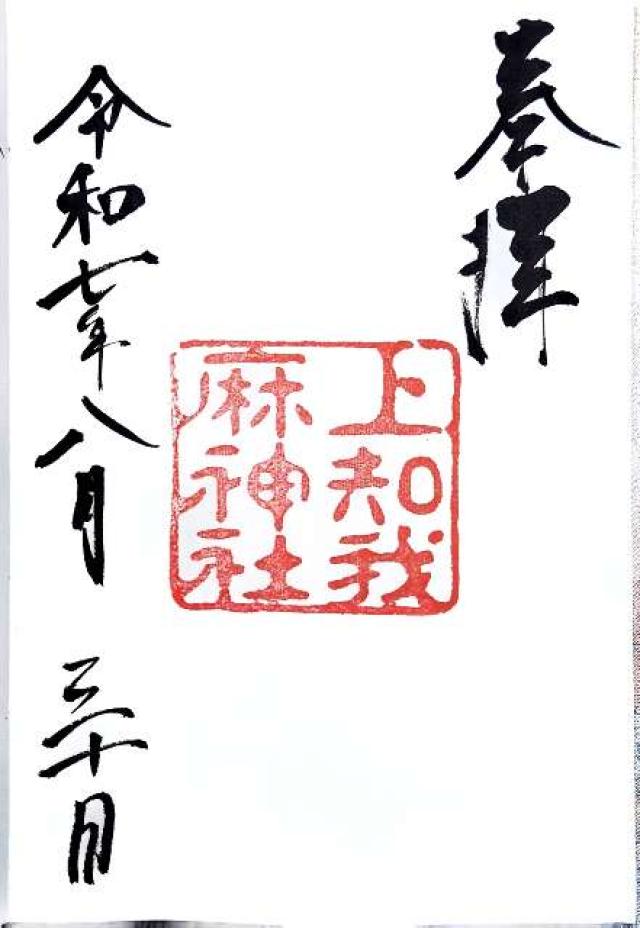 奉拝
上知我
麻神社
令和七年八月三十日